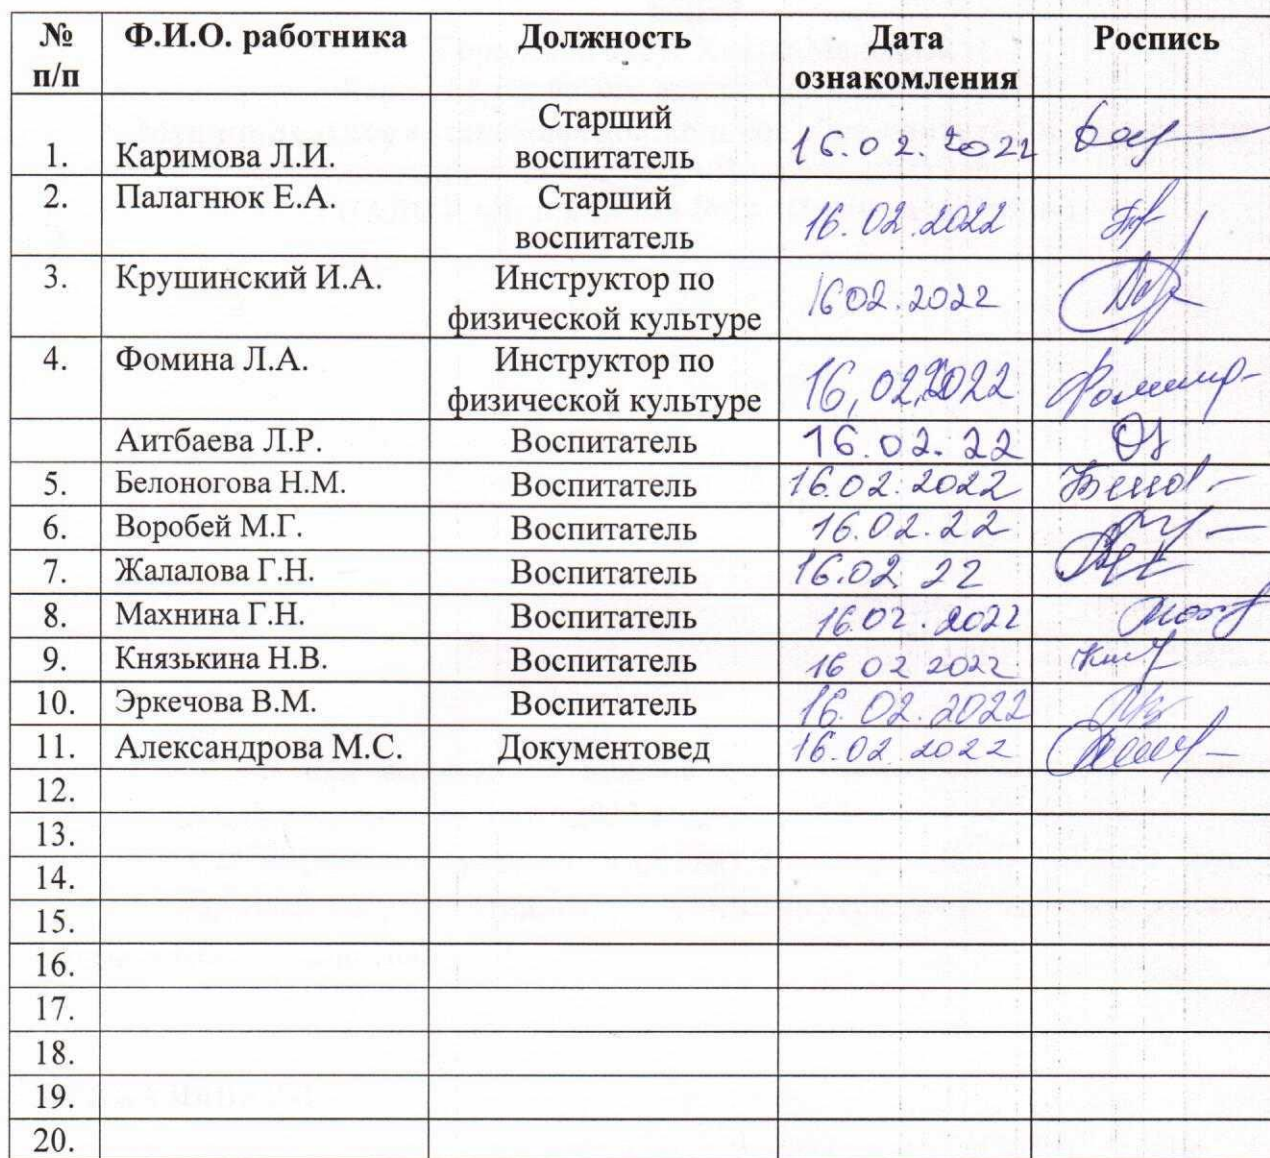 № п/п Ф.И.О. работника Должность Дата ознакомления Роспись
1. Каримова Л.И. Старший воспитатель 16.02.2022
2. Палагнюк Е.А. Старший воспитатель 16.02.2022
3. Крушинский И.А. Инструктор по физической культуре 1602.2022
4. Фомина Л.А. Инструктор по физической культуре 16,02,2022
Аитбаева Л.Р. Воспитатель 16.02.22
5. Белоногова Н.М. Воспитатель 16.02.2022
6. Воробей М.Г. Воспитатель 16.02.22
7. Жалалова Г.Н. Воспитатель 16.02 22
8. Махнина Г.Н. Воспитатель 16.02.2022
9. Князькина Н.В. Воспитатель 16 02 2022
10. Эркечова В.М. Воспитатель 16.02.2022
11. Александрова М.С. Документовед 16.02 2022
12.
13.
14.
15.
16.
17.
18.
19.
20.